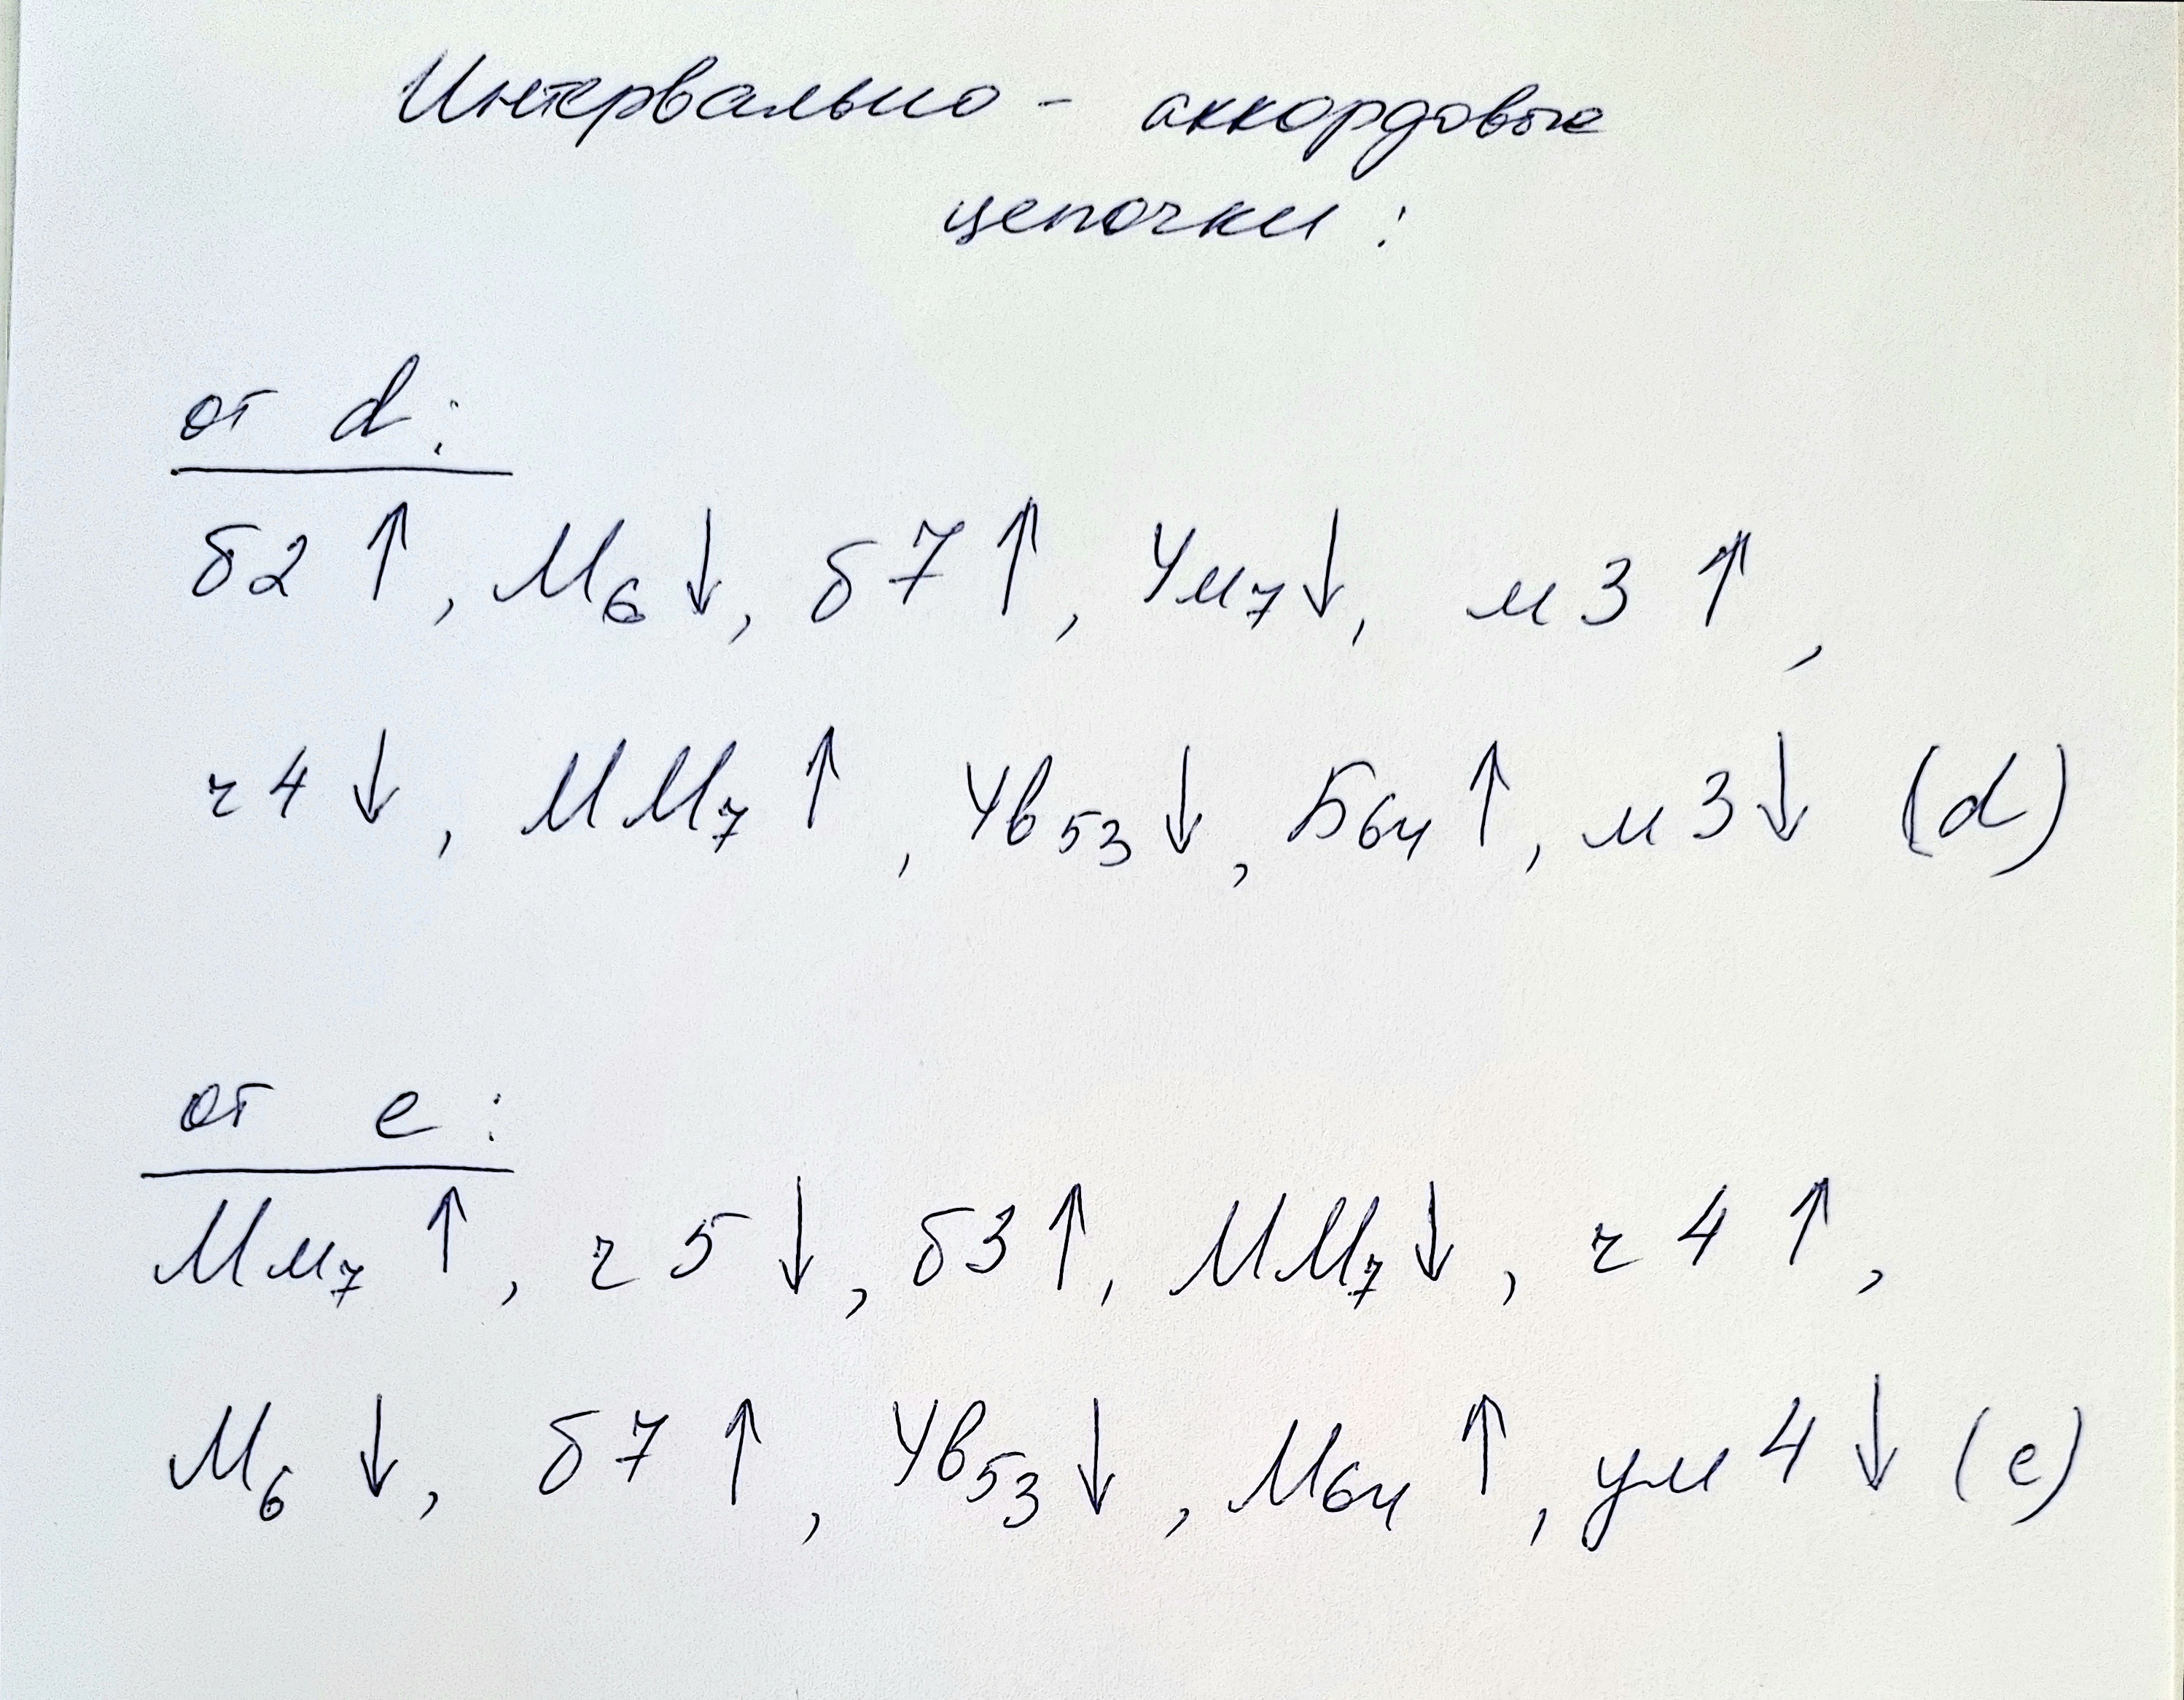 Интервально - аккордовые
цепочки:
от d:
б2 ↑, М6 ↓, б7 ↑, Ум7 ↓, м3 ↑,
ч4 ↓, ММ7 ↑, Ув53 ↓, Б64 ↑, м3 ↓ (d)
от e:
Мм7 ↑, ч5 ↓, б3 ↑, ММ7 ↓, ч4 ↑,
М6 ↓, б7 ↑, Ув53 ↓, М64 ↑, ум4 ↓ (e)